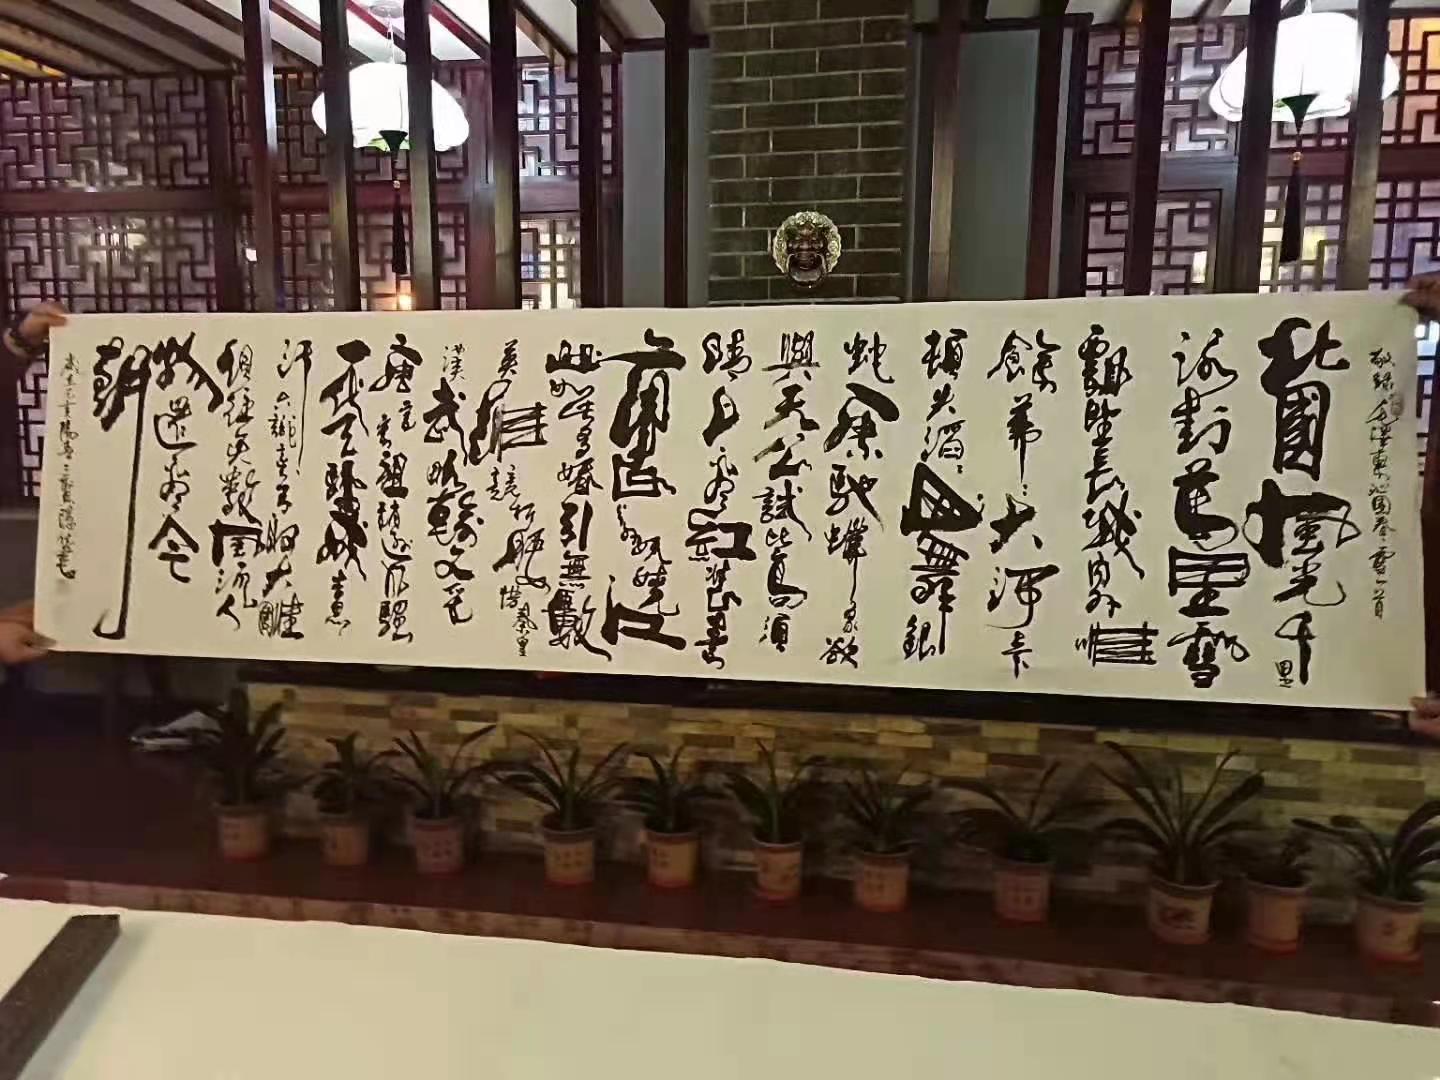 敬錄毛澤東沁園春雪一首
北國風光千里
冰封萬里雪
飄望長城內外惟
餘莽莽大河上下
頓失滔滔山舞銀
蛇原馳蠟象欲
與天公試比高須
晴日看紅裝素裹
妖嬈江
此多嬌引無數
英雄競折腰惜秦皇
漢武略輸文采
唐宗宋祖稍遜風騷
一代天驕成吉思
汗只識彎弓射大雕
俱往矣數風流人
物還看今
朝